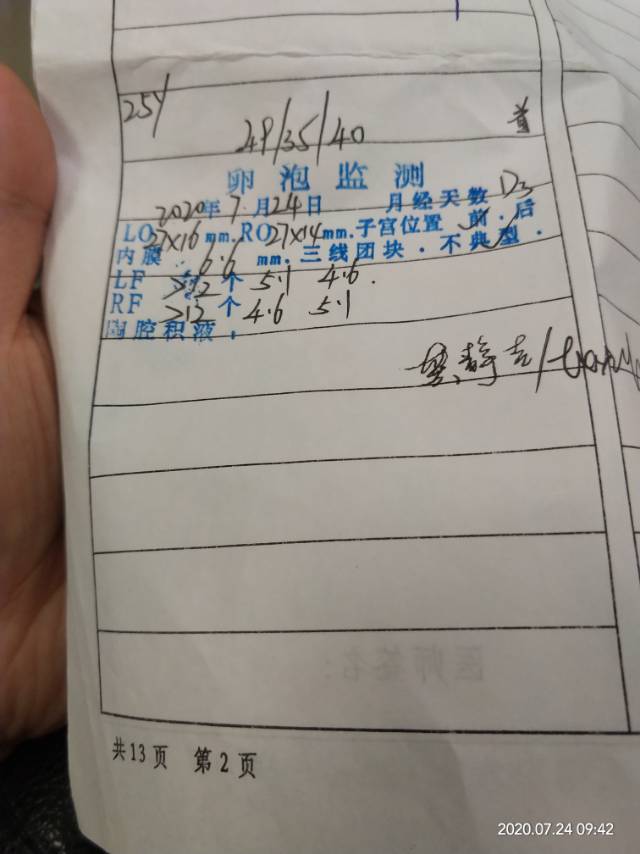 25岁
49/35/40
卵泡监测
2020年7月24日 月经天数D3
LO27×16mm.RO27×14mm.子宫位置 前.后
内膜: 6.6 mm.三线团块.不典型.
LF >12个 5.1 4.6.
RF >12个 4.6 5.1
胸腔积液:
共13页 第2页
2020.07.24 09:42